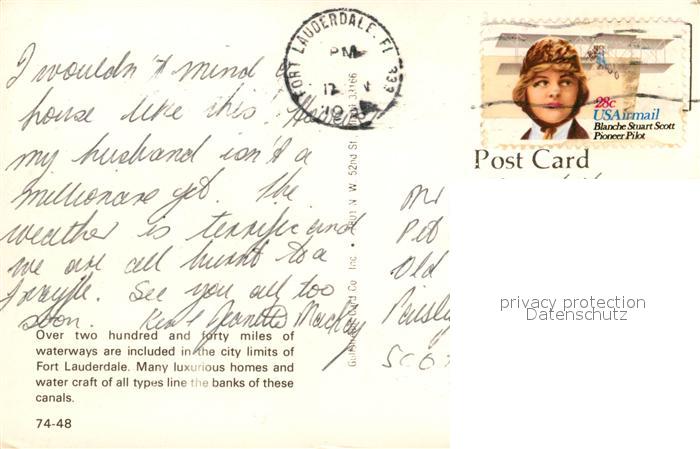 I wouldn't mind a
house like this! However
my husband isn't a
millionare yet. The
weather is terrific and
we are all burnt to a
frazzle. See you all too
soon. Ken & Jeanette Mackay
Over two hundred and forty miles of
waterways are included in the city limits of
Fort Lauderdale. Many luxurious homes and
water craft of all types line the banks of these
canals.
74-48
FORT LAUDERDALE, FL 333
PM
N. W. 52nd St
33166
Card Co Inc
28c
USAirmail
Blanche Stuart Scott
Pioneer Pilot
Post Card
Mr
Old
Paisley
SCO
privacy protection
Datenschutz